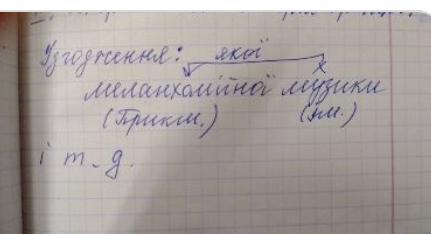 Узгодження: якої
х
меланхолійної музики
(Прикм.) (ім.)
і т. д.